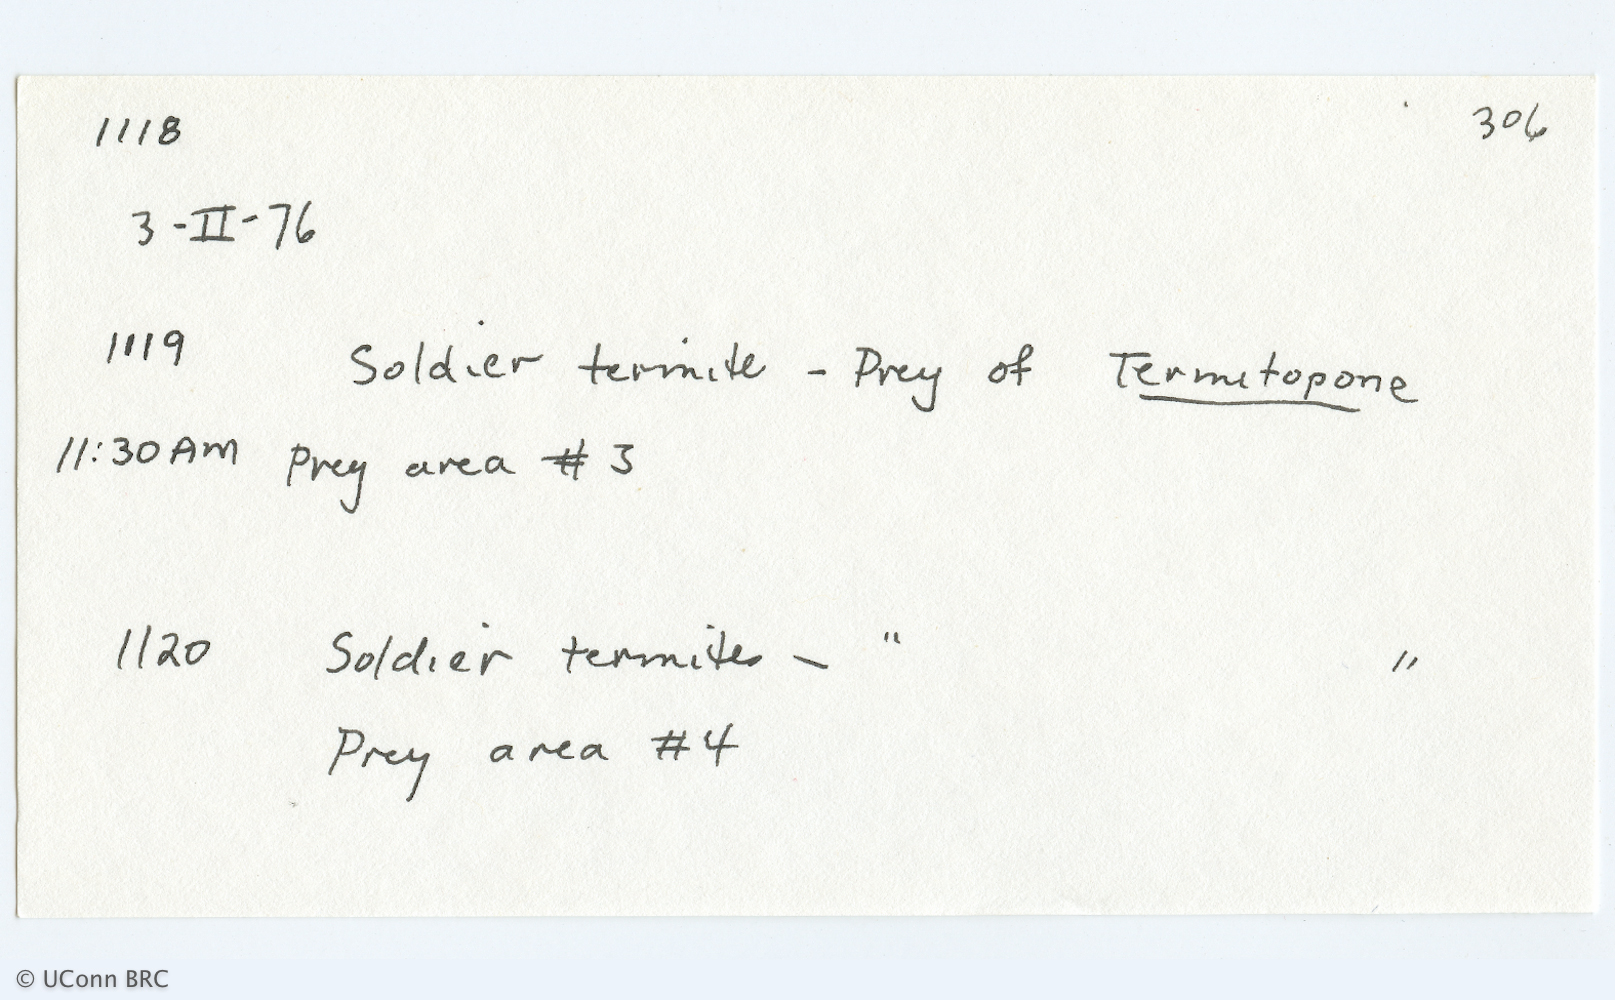 1118 306
3-II-76
1119 Soldier termite - Prey of Termitopone
11:30 AM Prey area # 3
1120 Soldier termites - " "
Prey area #4
© UConn BRC